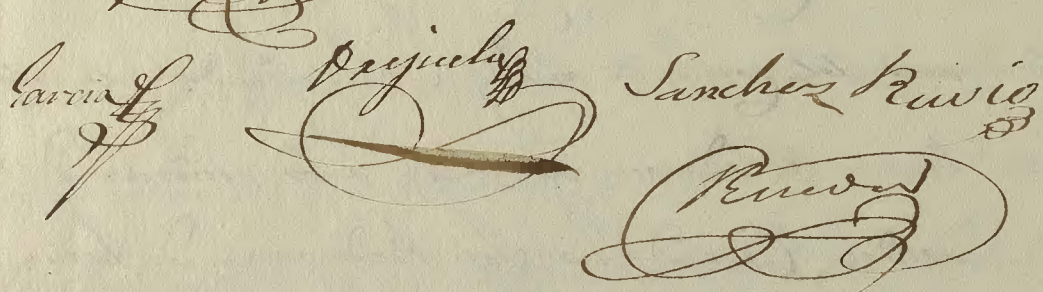 Garcia Orijuela Sanchez Ruvio
Rueda